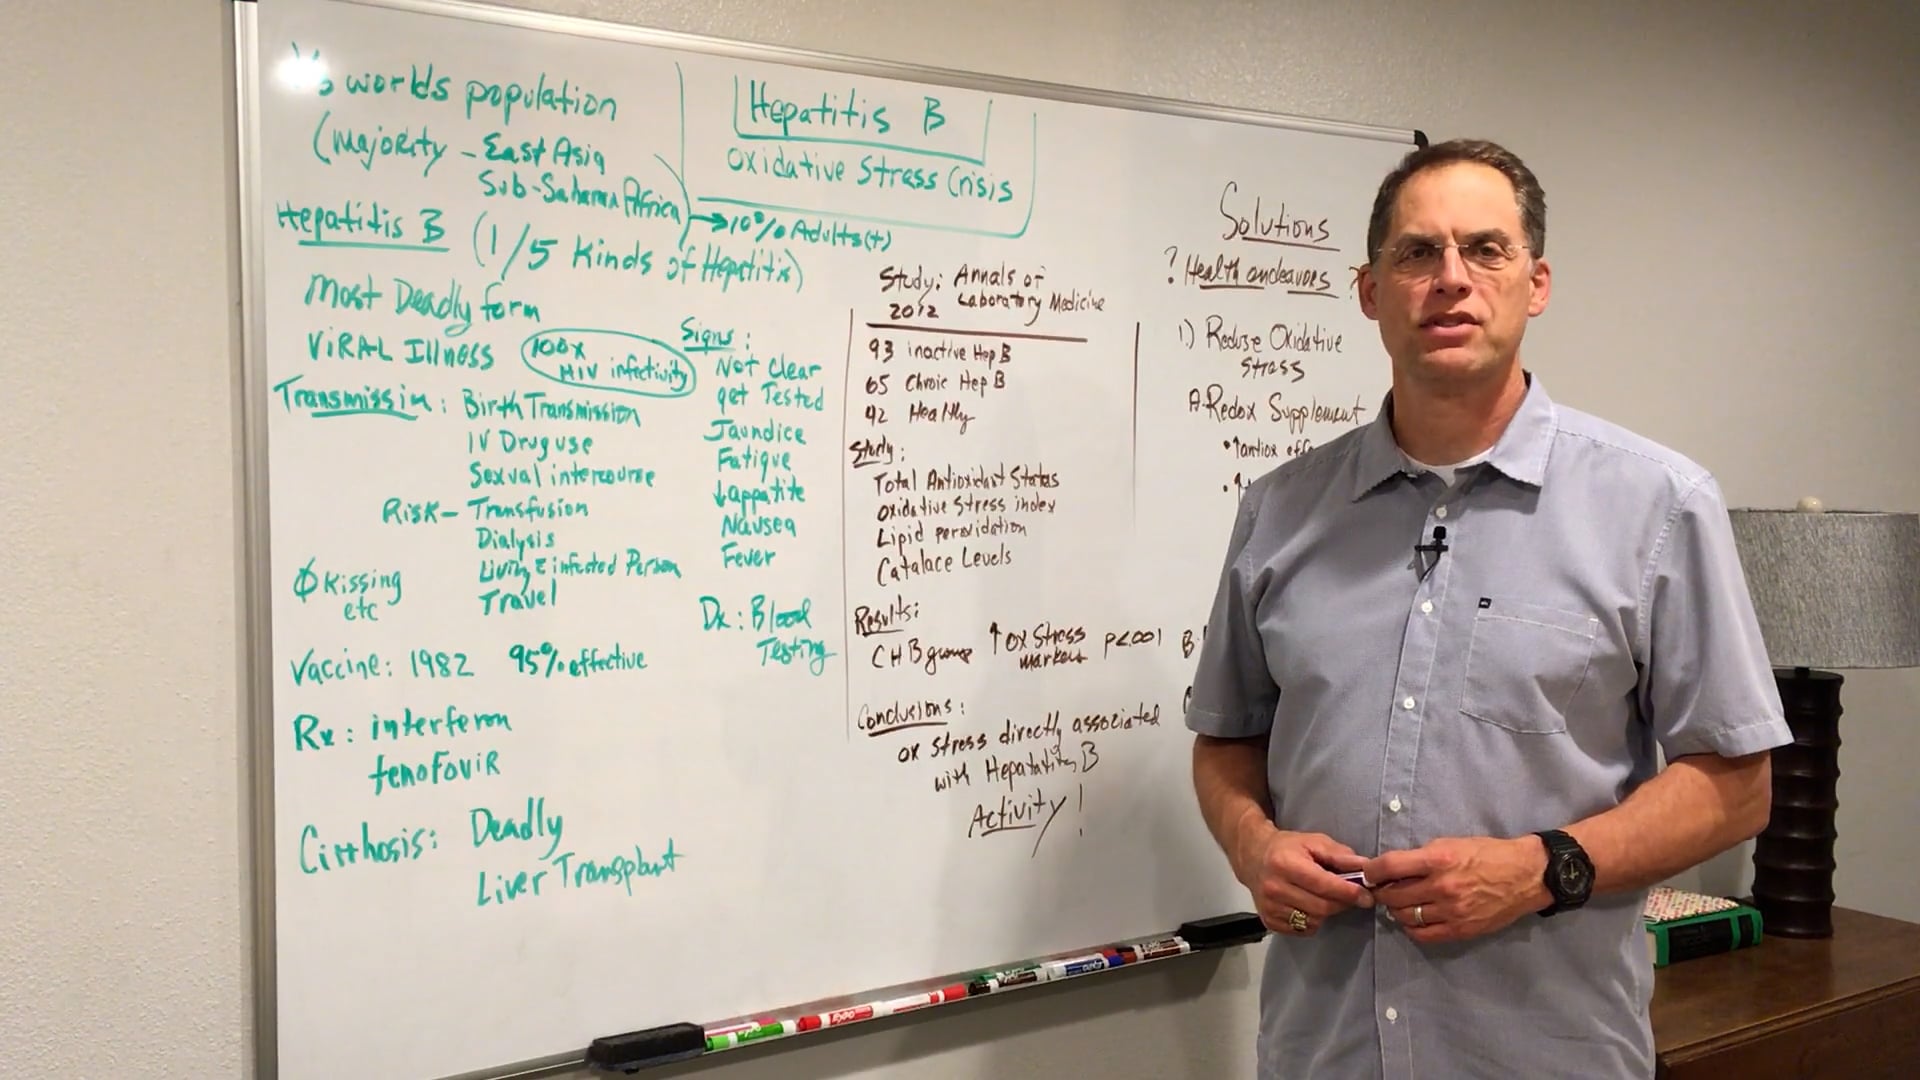 worlds population
(Majority - East Asia
Sub-Saharan Africa
→ 10% Adults (+)
Hepatitis B
Oxidative Stress Crisis
Hepatitis B (1/5 Kinds of Hepatitis)
Most Deadly form
ViRAL Illness
100x
HIV infectivity
Transmission: Birth Transmission
IV Drug use
Sexual intercourse
Risk- Transfusion
Dialysis
Living c̄ infected Person
Travel
Ø Kissing
etc
Vaccine: 1982 95% effective
Rx: interferon
tenofoviR
Cirrhosis: Deadly
Liver Transplant
Signs:
Not Clear
get Tested
Jaundice
Fatigue
↓appatite
Nausea
Fever
Dx: Blood
Testing
Study: Annals of
2012 Laboratory Medicine
93 inactive Hep B
65 Chroic Hep B
42 Healthy
Study:
Total Antioxidant Status
Oxidative Stress index
Lipid peroxidation
Catalace Levels
Results:
CHB group ↑ ox Stress
markers p<.001
Conclusions:
ox stress directly associated
with Hepatatitis B
Activity!
Solutions
? Health endeavors ?
1.) Reduse Oxidative
stress
A-Redox Supplement
• ↑antiox
B